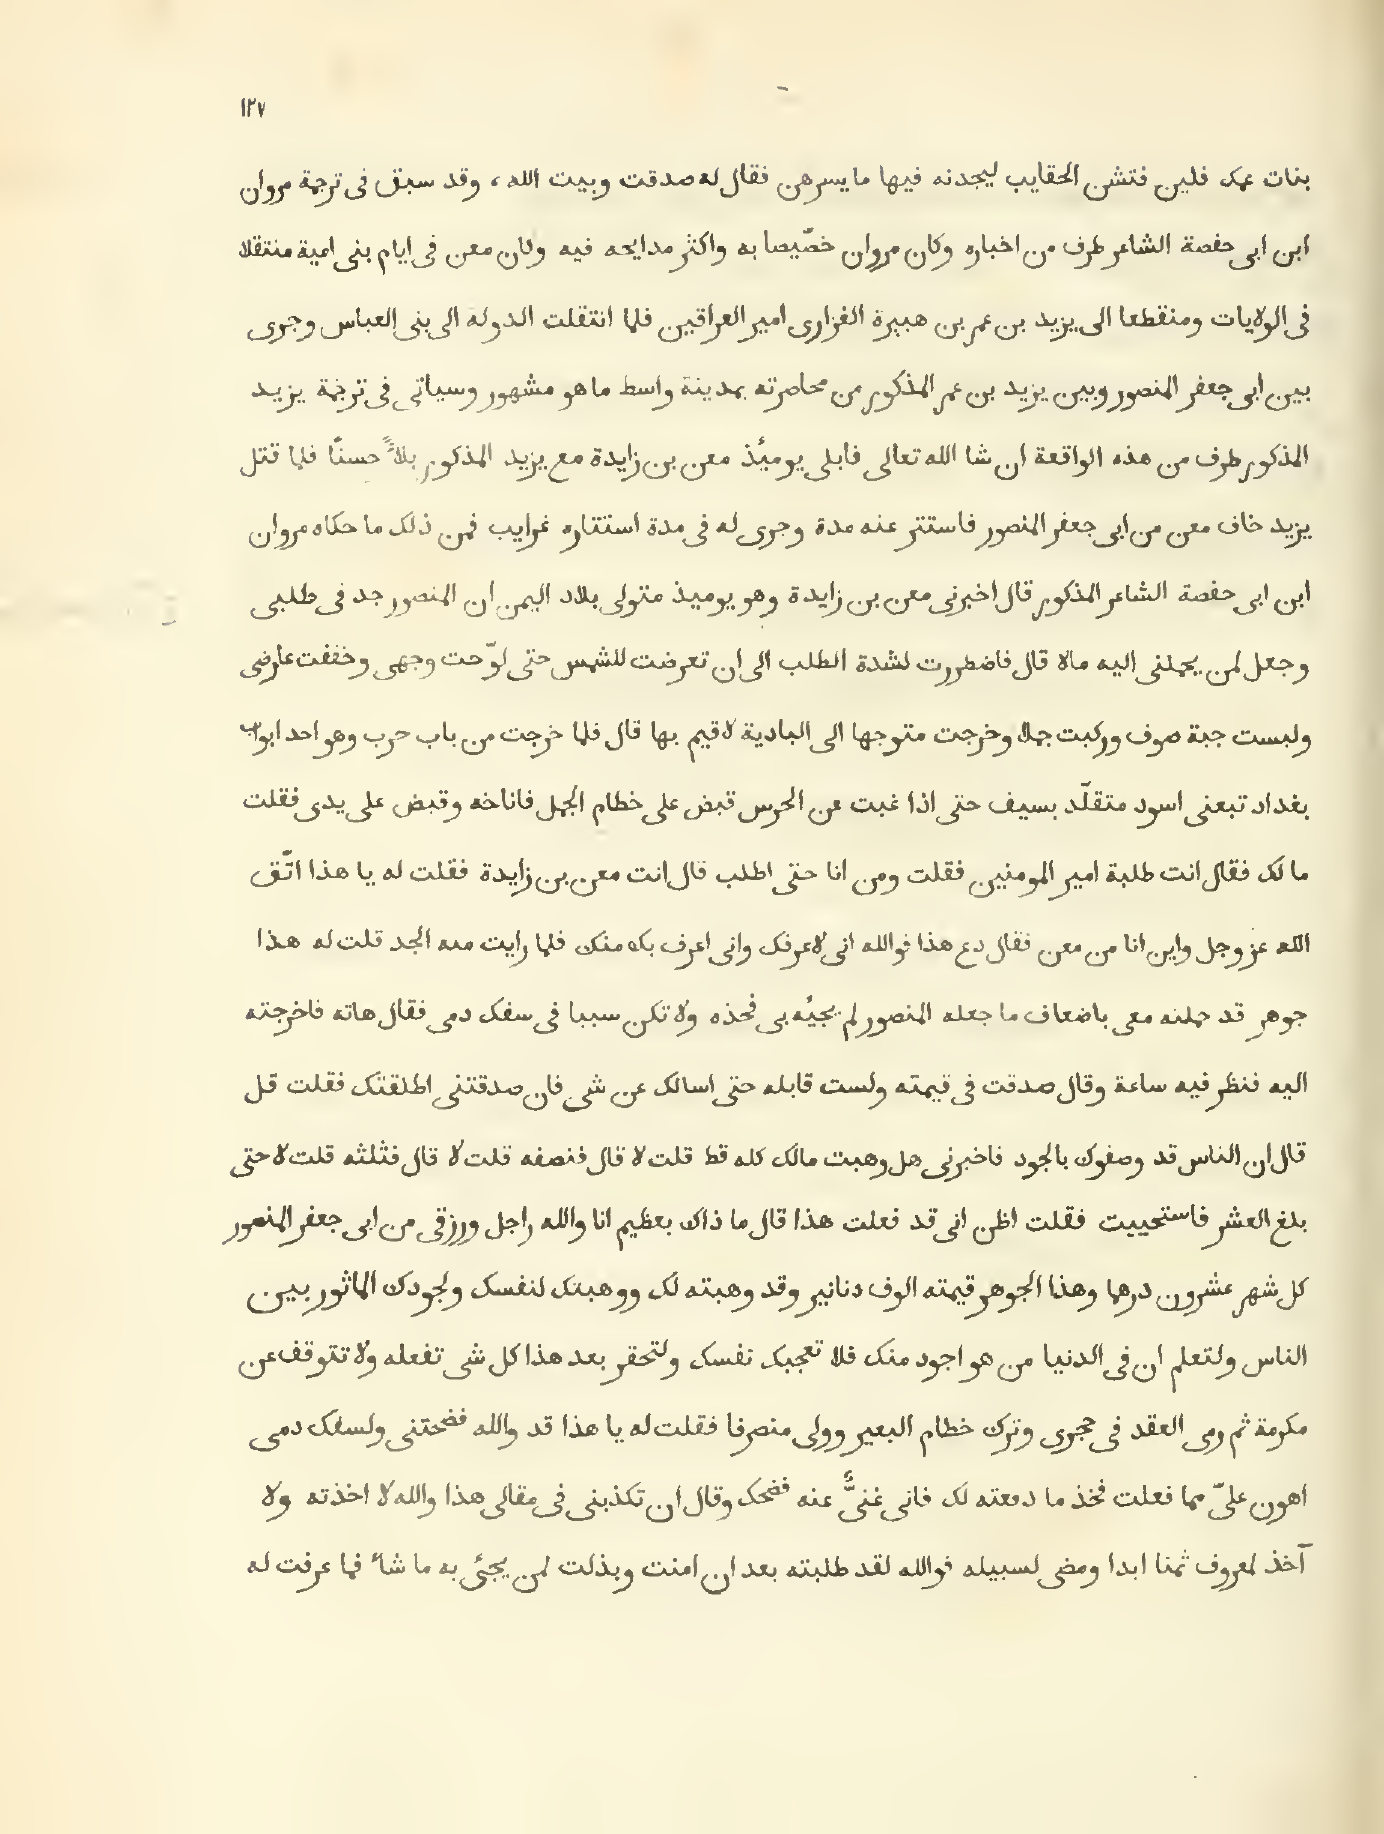 ١٢٧
بنات عمك فلين فتشن الحقايب ليجدنه فيها ما يسرهن فقال له صدقت وبيت الله، وقد سبق فى ترجمة مروان
ابن ابى حفصة الشاعر طرف من اخباره وكان مروان خصّيصا به واكثر مدايحه فيه وكان معن فى ايام بنى امية منتقلا
فى الولايات ومنقطعا الى يزيد بن عمر بن هبيرة الفزارى امير العراقين فلما انتقلت الدولة الى بنى العباس وجرى
بين ابى جعفر المنصور وبين يزيد بن عمر المذكور من محاصرته بمدينة واسط ما هو مشهور وسياتى فى ترجمة يزيد
المذكور طرف من هذه الواقعة ان شا الله تعالى فابلى يومئذ معن بن زايدة مع يزيد المذكور بلاءً حسنًا فلما قتل
يزيد خاف معن من ابى جعفر المنصور فاستتر عنه مدة وجرى له فى مدة استتاره غرايب فمن ذلك ما حكاه مروان
ابن ابى حفصة الشاعر المذكور قال اخبرنى معن بن زايدة وهو يوميذ متولى بلاد اليمن ان المنصور جد فى طلبى
وجعل لمن يحملنى اليه مالا قال فاضطررت لشدة الطلب الى ان تعرضت للشمس حتى لوّحت وجهى وخففت عارضى
ولبست جبة صوف وركبت جملا وخرجت متوجها الى البادية لاقيم بها قال فلما خرجت من باب حرب وهو احد ابواب
بغداد تبعنى اسود متقلّد بسيف حتى اذا غبت عن الحرس قبض على خطام الجمل فاناخه وقبض على يدى فقلت
ما لك فقال انت طلبة امير المومنين فقلت ومن انا حتى اطلب قال انت معن بن زايدة فقلت له يا هذا اتّق
الله عز وجل واين انا من معن فقال دع هذا فوالله انى لاعرفك وانى اعرف بك منك فلما رايت منه الجد قلت له هذا
جوهر قد حملته معى باضعاف ما جعله المنصور لم يجئه بى فخذه ولا تكن سببا فى سفك دمى فقال هاته فاخرجته
اليه فنظر فيه ساعة وقال صدقت فى قيمته ولست قابله حتى اسالك عن شى فان صدقتنى اطلقتك فقلت قل
قال ان الناس قد وصفوك بالجود فاخبرنى هل وهبت مالك كله قط قلت لا قال فنصفه قلت لا قال فثلثه قلت لا حتى
بلغ العشر فاستحييت فقلت اظن انى قد فعلت هذا قال ما ذاك بعظيم انا والله راجل ورزقى من ابى جعفر المنصور
كل شهر عشرون درهما وهذا الجوهر قيمته الوف دنانير وقد وهبته لك ووهبتك لنفسك ولجودك الماثور بين
الناس ولتعلم ان فى الدنيا من هو اجود منك فلا تعجبك نفسك ولتحقر بعد هذا كل شى تفعله ولا تتوقف عن
مكرمة ثم رمى العقد فى حجرى وترك خطام البعير وولى منصرفا فقلت له يا هذا قد والله فضحتنى ولسفك دمى
اهون علىّ مما فعلت فخذ ما دفعته لك فانى غنىٌّ عنه فضحك وقال ان تكذبنى فى مقالى هذا والله لا اخذته ولا
آخذ لمعروف ثمنا ابدا ومضى لسبيله فوالله لقد طلبته بعد ان امنت وبذلت لمن يجىٔ به ما شاء فما عرفت له